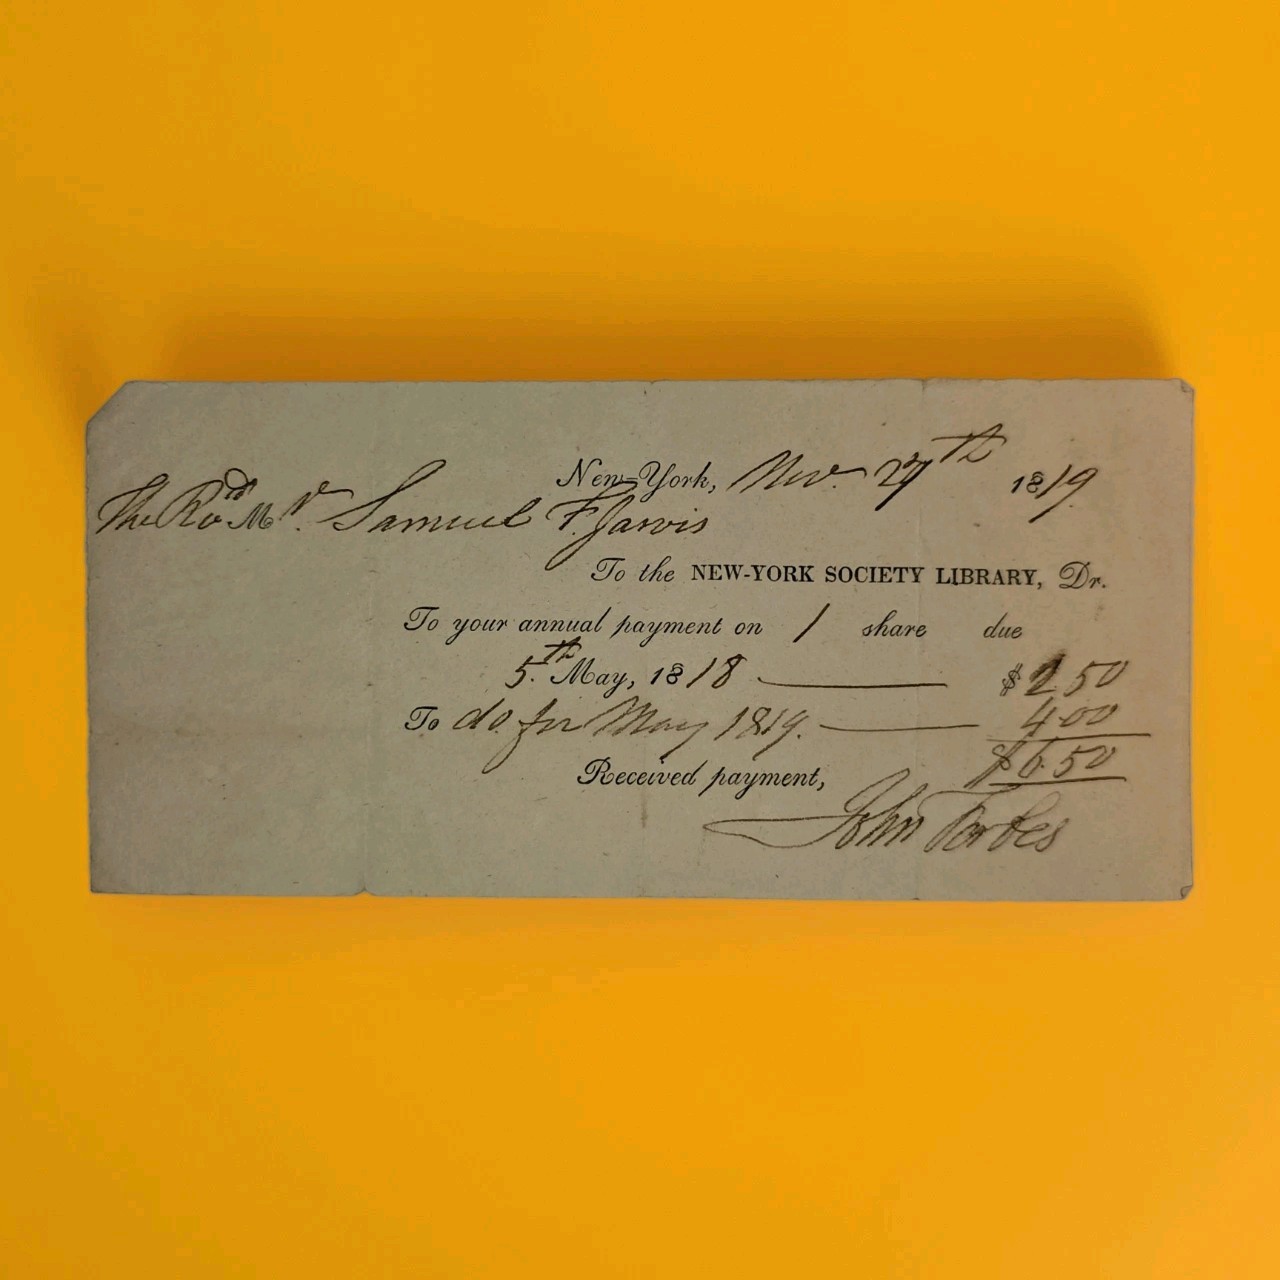 New-York, Nov. 27th 1819.
The Revd Mr. Samuel F. Jarvis
To the NEW-YORK SOCIETY LIBRARY, Dr.
To your annual payment on 1 share due
5.th May, 1818 $2.50
To do. for May 1819. 4.00
$6.50
Received payment,
John Forbes